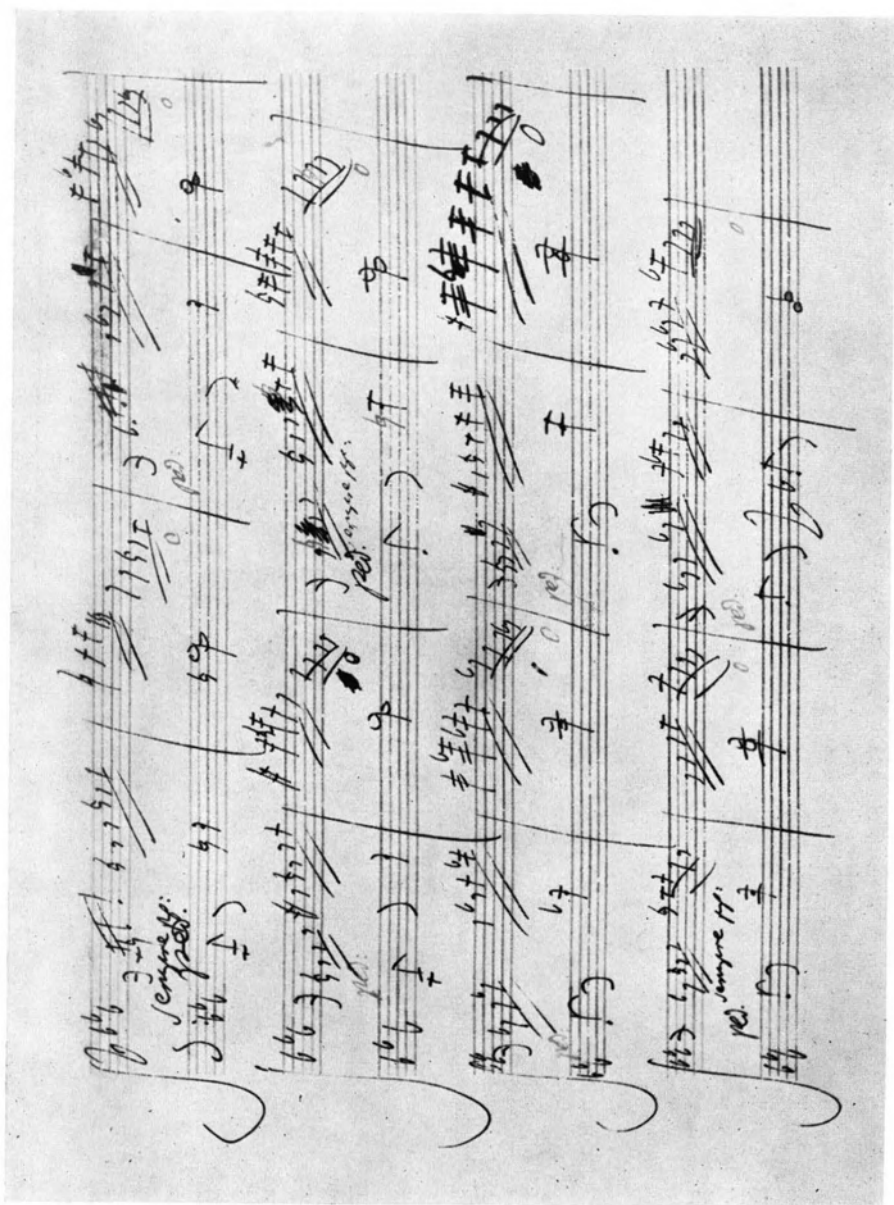 sempre pp:
ped: ped:
ped: ped: sempre pp:
ped: ped:
ped: sempre pp: ped: